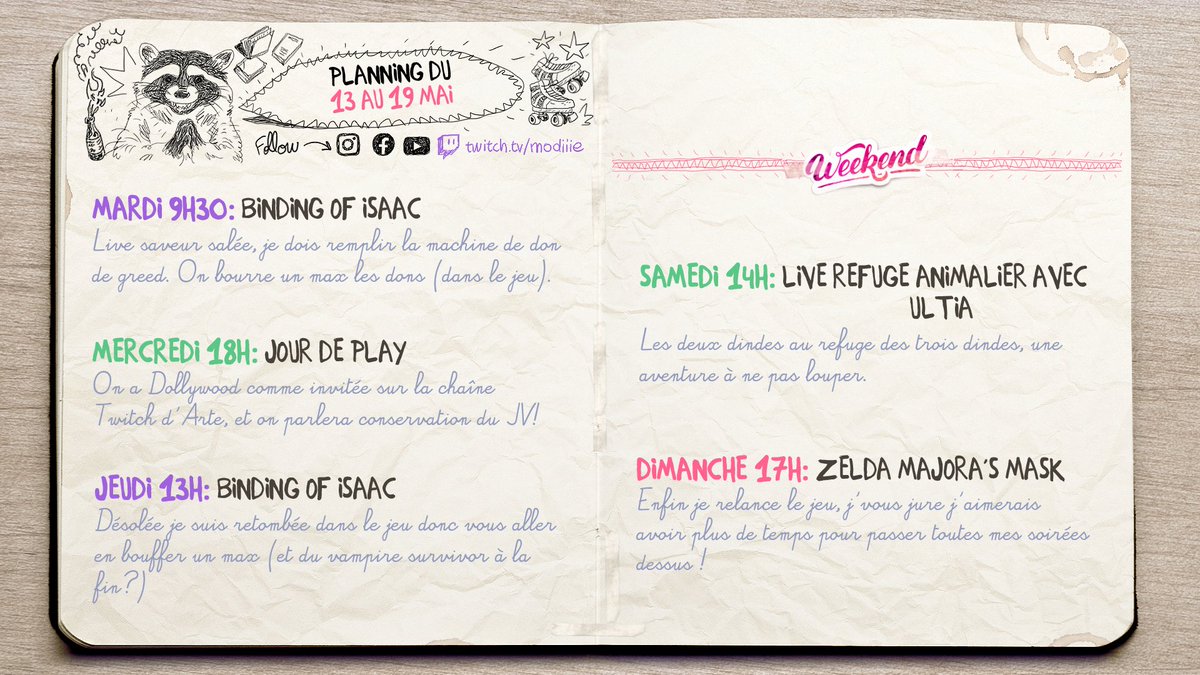 PLANNING DU
13 AU 19 MAI
Follow
twitch.tv/modiiie
MARDI 9H30: BINDING OF ISAAC
Live saveur salée, je dois remplir la machine de don
de greed. On bourre un max les dons (dans le jeu).
MERCREDI 18H: JOUR DE PLAY
On a Dollywood comme invitée sur la chaîne
Twitch d'Arte, et on parlera conservation du JV!
JEUDI 13H: BINDING OF ISAAC
Désolée je suis retombée dans le jeu donc vous aller
en bouffer un max (et du vampire survivor à la
fin?)
Weekend
SAMEDI 14H: LIVE REFUGE ANIMALIER AVEC
ULTIA
Les deux dindes au refuge des trois dindes, une
aventure à ne pas louper.
DIMANCHE 17H: ZELDA MAJORA'S MASK
Enfin je relance le jeu, j'vous jure j'aimerais
avoir plus de temps pour passer toutes mes soirées
dessus !